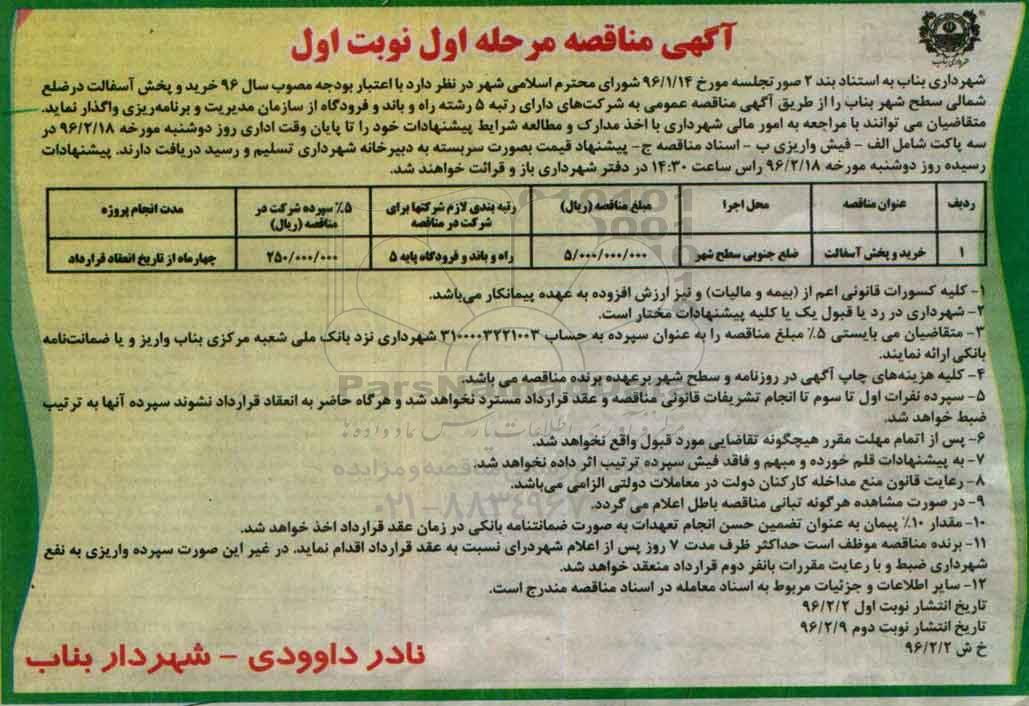 آگهی مناقصه مرحله اول نوبت اول
شهرداری بناب
شهرداری بناب به استناد بند ۲ صورتجلسه مورخ ۹۶/۱/۱۴ شورای محترم اسلامی شهر در نظر دارد با اعتبار بودجه مصوب سال ۹۶ خرید و پخش آسفالت در ضلع
شمالی سطح شهر بناب را از طریق آگهی مناقصه عمومی به شرکت‌های دارای رتبه ۵ رشته راه و باند و فرودگاه از سازمان مدیریت و برنامه‌ریزی واگذار نماید.
متقاضیان می توانند با مراجعه به امور مالی شهرداری با اخذ مدارک و مطالعه شرایط پیشنهادات خود را تا پایان وقت اداری روز دوشنبه مورخه ۹۶/۲/۱۸ در
سه پاکت شامل الف - فیش واریزی ب - اسناد مناقصه ج- پیشنهاد قیمت بصورت سربسته به دبیرخانه شهرداری تسلیم و رسید دریافت دارند. پیشنهادات
رسیده روز دوشنبه مورخه ۹۶/۲/۱۸ راس ساعت ۱۴:۳۰ در دفتر شهرداری باز و قرائت خواهند شد.
ردیف عنوان مناقصه محل اجرا مبلغ مناقصه (ریال) رتبه بندی لازم شرکتها برای شرکت در مناقصه ۵٪ سپرده شرکت در مناقصه (ریال) مدت انجام پروژه
۱ خرید و پخش آسفالت ضلع جنوبی سطح شهر ۵/۰۰۰/۰۰۰/۰۰۰ راه و باند و فرودگاه پایه ۵ ۲۵۰/۰۰۰/۰۰۰ چهارماه از تاریخ انعقاد قرارداد
۱- کلیه کسورات قانونی اعم از (بیمه و مالیات) و نیز ارزش افزوده به عهده پیمانکار می‌باشد.
۲- شهرداری در رد یا قبول یک یا کلیه پیشنهادات مختار است.
۳- متقاضیان می بایستی ۵٪ مبلغ مناقصه را به عنوان سپرده به حساب ۳۱۰۰۰۰۳۲۲۱۰۰۳ شهرداری نزد بانک ملی شعبه مرکزی بناب واریز و یا ضمانت‌نامه
بانکی ارائه نمایند.
۴- کلیه هزینه‌های چاپ آگهی در روزنامه و سطح شهر برعهده برنده مناقصه می باشد.
۵- سپرده نفرات اول تا سوم تا انجام تشریفات قانونی مناقصه و عقد قرارداد مسترد نخواهد شد و هرگاه حاضر به انعقاد قرارداد نشوند سپرده آنها به ترتیب
ضبط خواهد شد.
۶- پس از اتمام مهلت مقرر هیچگونه تقاضایی مورد قبول واقع نخواهد شد.
۷- به پیشنهادات قلم خورده و مبهم و فاقد فیش سپرده ترتیب اثر داده نخواهد شد.
۸- رعایت قانون منع مداخله کارکنان دولت در معاملات دولتی الزامی می‌باشد.
۹- در صورت مشاهده هرگونه تبانی مناقصه باطل اعلام می گردد.
۱۰- مقدار ۱۰٪ پیمان به عنوان تضمین حسن انجام تعهدات به صورت ضمانتنامه بانکی در زمان عقد قرارداد اخذ خواهد شد.
۱۱- برنده مناقصه موظف است حداکثر ظرف مدت ۷ روز پس از اعلام شهرداری نسبت به عقد قرارداد اقدام نماید. در غیر این صورت سپرده واریزی به نفع
شهرداری ضبط و با رعایت مقررات بانفر دوم قرارداد منعقد خواهد شد.
۱۲- سایر اطلاعات و جزئیات مربوط به اسناد معامله در اسناد مناقصه مندرج است.
تاریخ انتشار نوبت اول ۹۶/۲/۲
تاریخ انتشار نوبت دوم ۹۶/۲/۹
خ ش ۹۶/۲/۲
نادر داوودی - شهردار بناب